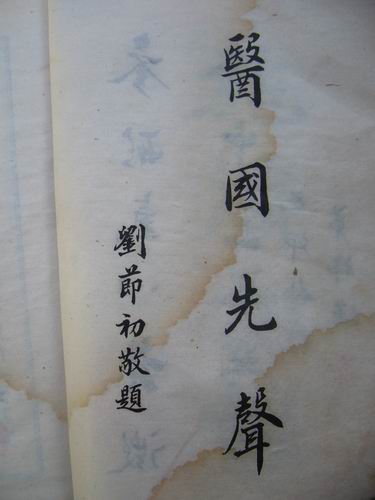 醫國先聲
劉節初敬題